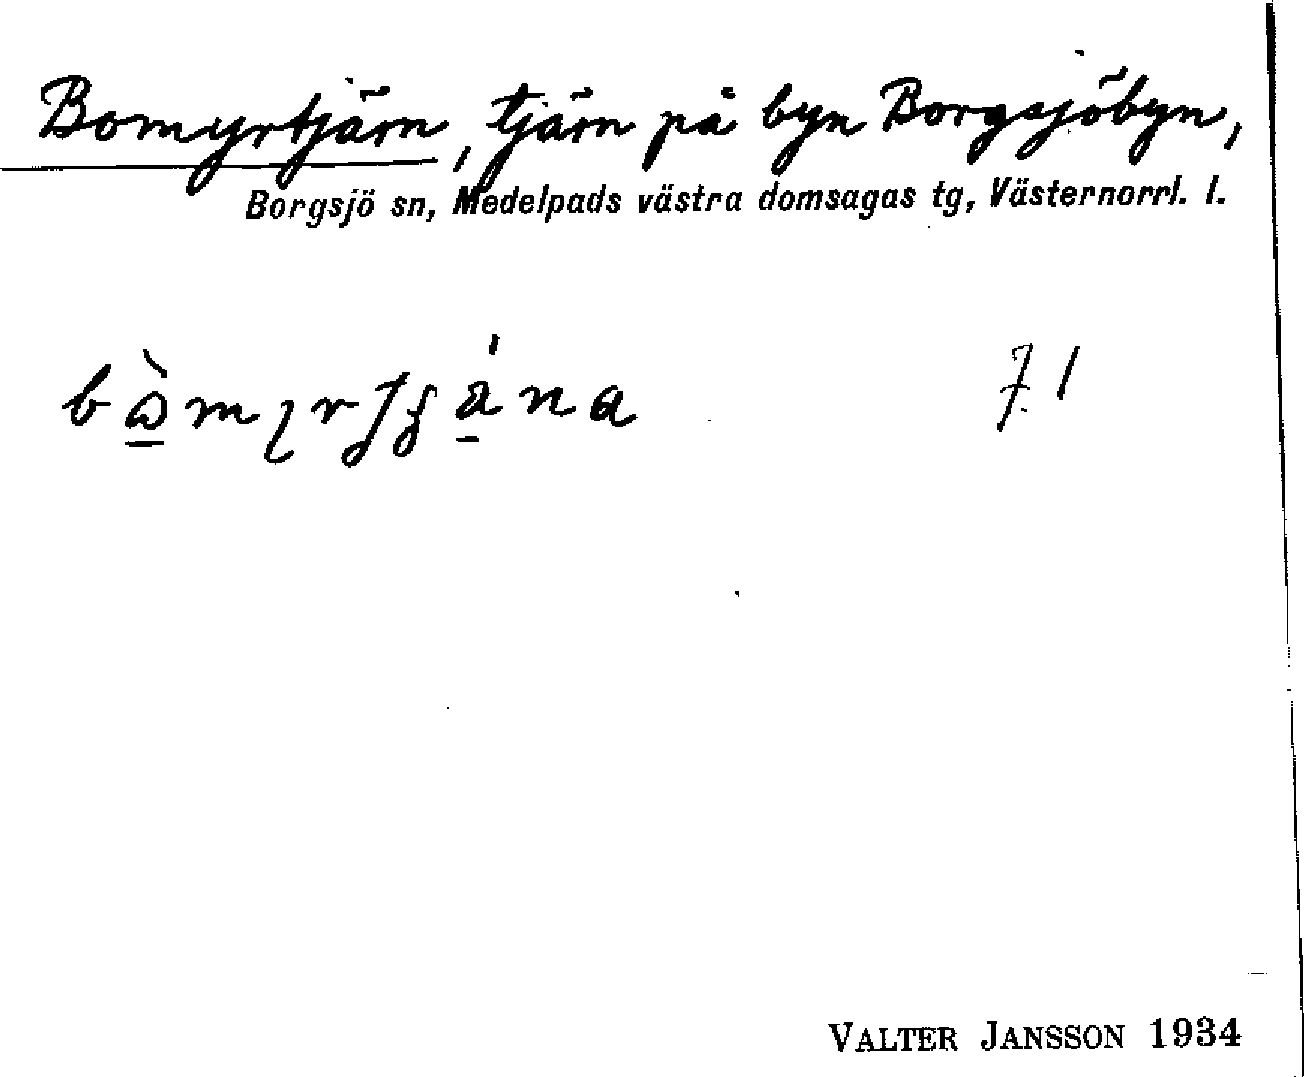 Bomyrtjärn, tjärn på byn Borgsjöbyn,
Borgsjö sn, Medelpads västra domsagas tg, Västernorrl. l.
71
VALTER JANSSON 1934